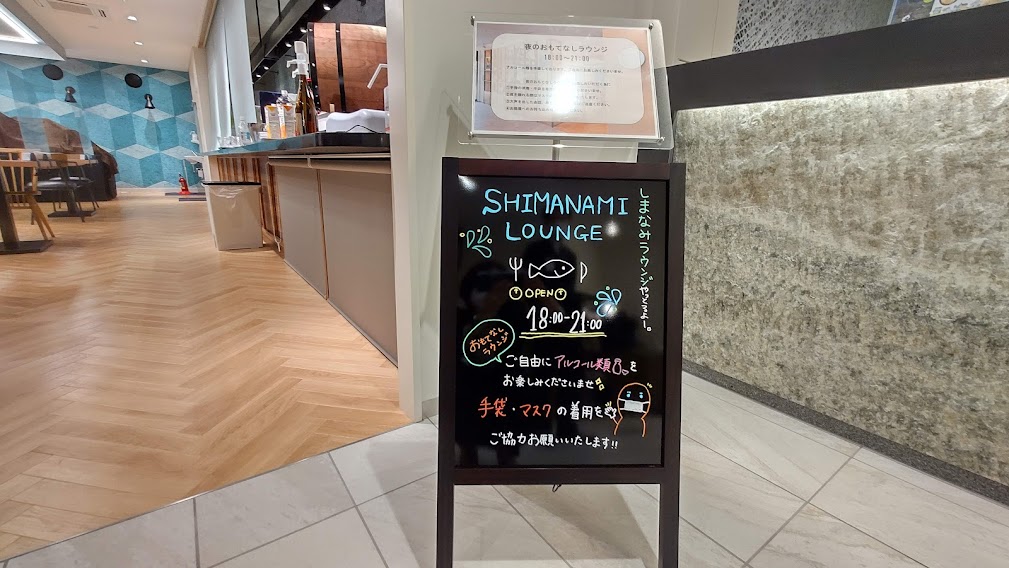 夜のおもてなしラウンジ
18:00～21:00
SHIMANAMI
LOUNGE
しまなみラウンジやってるよー。
OPEN
18:00-21:00
おもてなし
ラウンジ
ご自由に アルコール類を
お楽しみくださいませ
手袋・マスクの着用を
ご協力お願いいたします!!